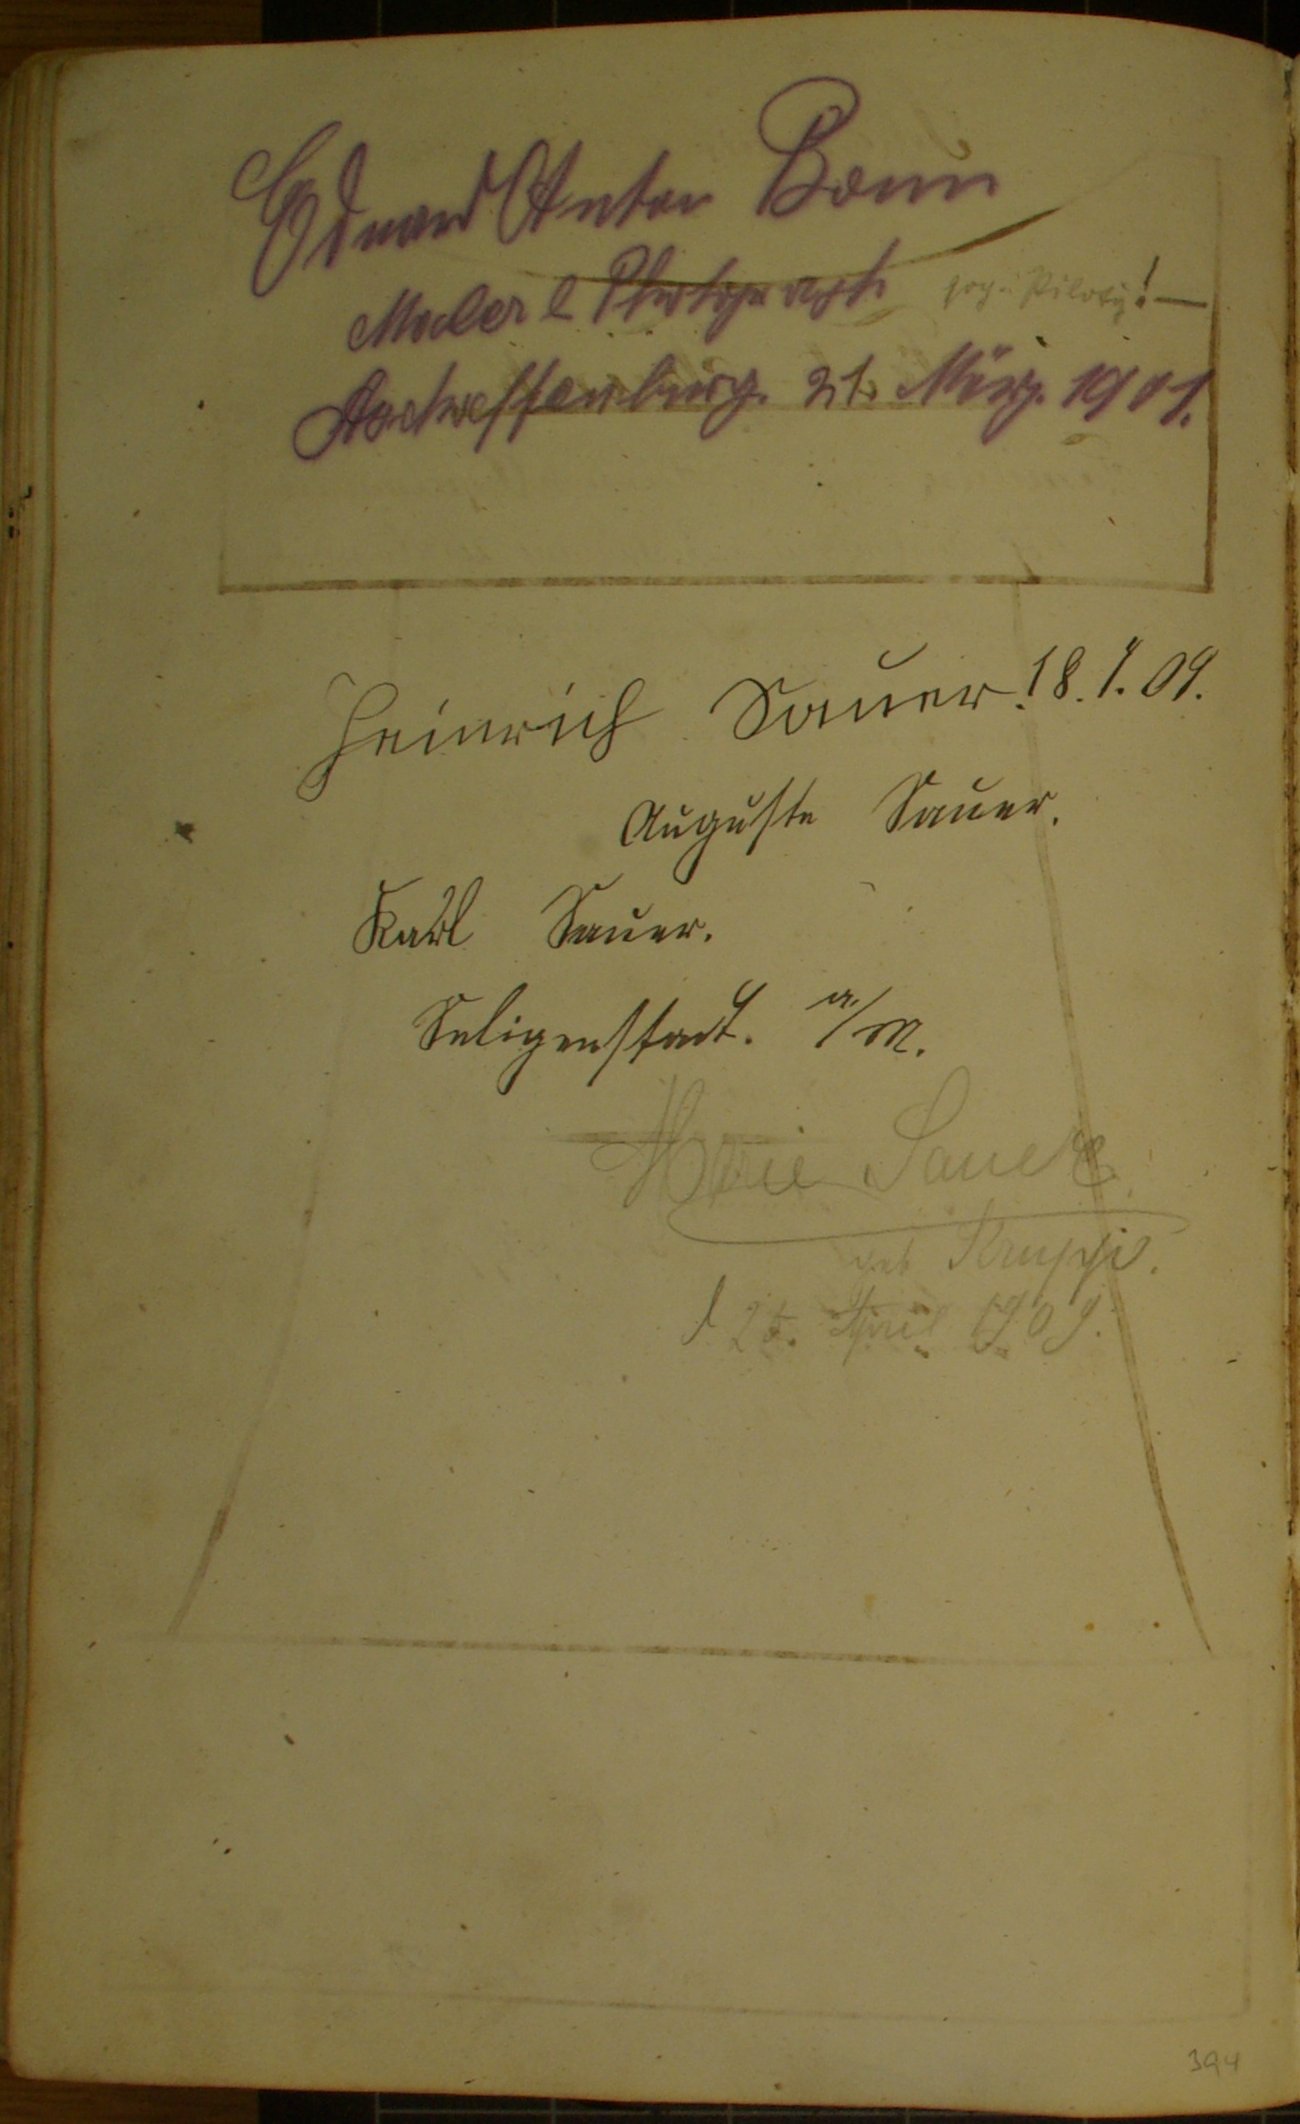 Eduard Anton Bonn
Maler & Photograph sog. Piloty! —
Aschaffenburg. 21. März. 1901.
Heinrich Sauer. 18.1.09.
Auguste Sauer.
Karl Sauer.
Seligenstadt. a./M.
Marie Sauer
geb Krupp.
d 25. April 1909.
394